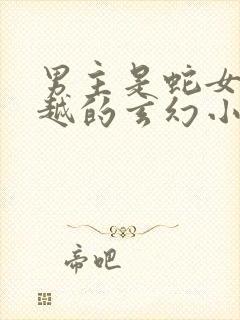 男主是蛇女
越的玄幻小
帝吧